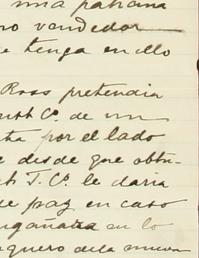 una patraña
no vendedor
e tenga en ello
Ross pretendia
C.º de un
ta por el lado
e desde que obtu-
T. C.º le daria
de paz en caso
engañaña en lo
quero de la